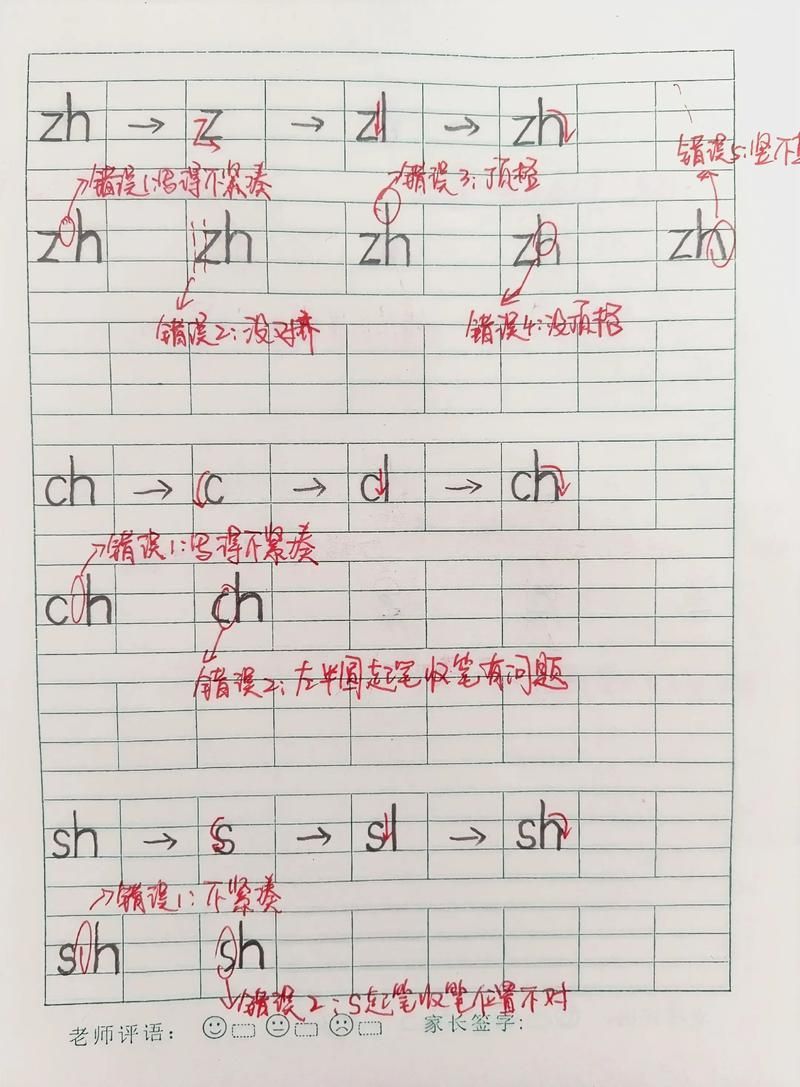 zh → z → zl → zh
错误1:写得不紧凑 错误3:顶格 错误5:竖不
zh zh zh zh zh
错误2:没对齐 错误4:没顶格
ch → c → cl → ch
错误1:写得不紧凑
ch ch
错误2:左半圆起笔收笔有问题
sh → s → sl → sh
错误1:不紧凑
sh sh
错误2:s起笔收笔位置不对
老师评语: 家长签字: